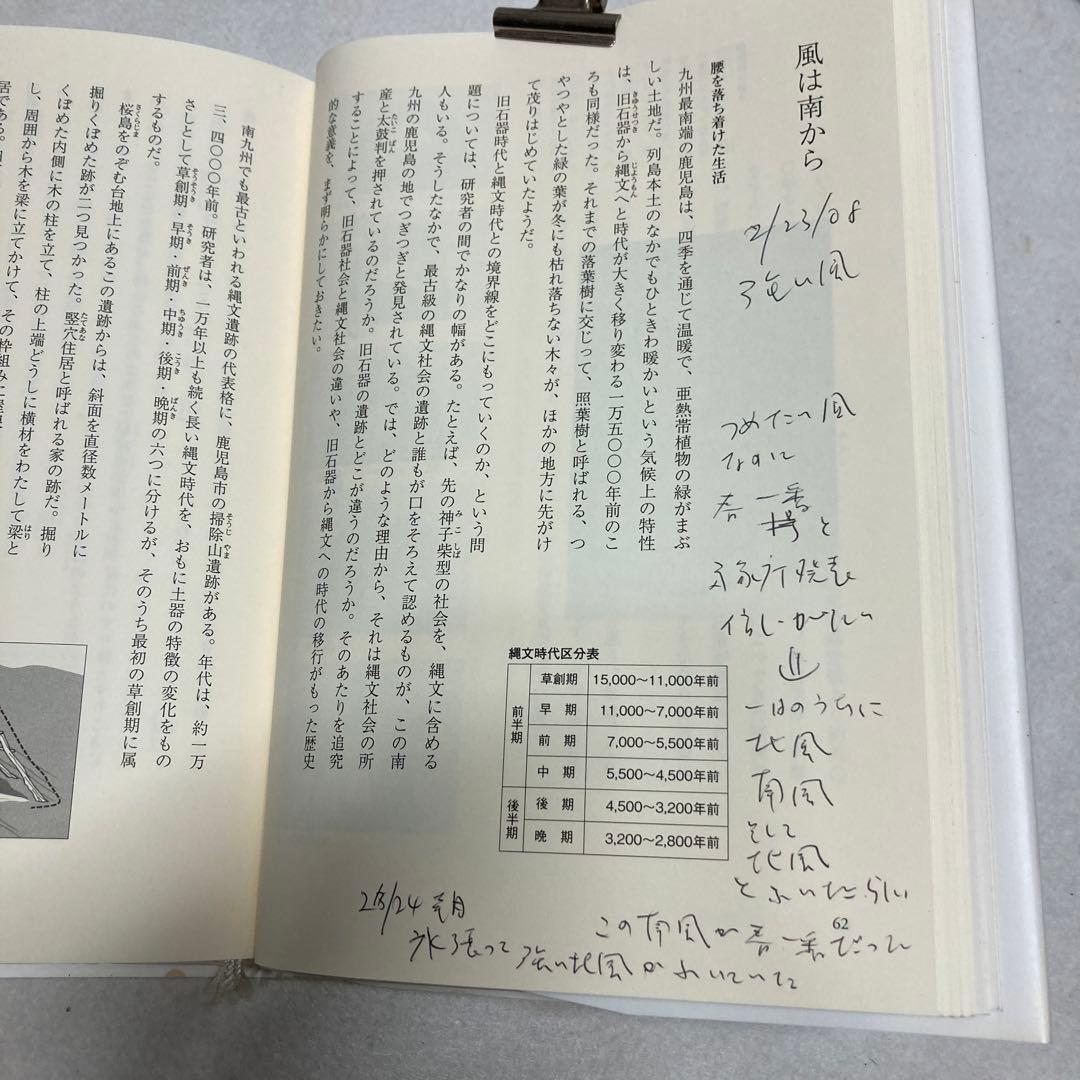 風は南から
腰を落ち着けた生活
九州最南端の鹿児島は、四季を通じて温暖で、亜熱帯植物の緑がまぶ
しい土地だ。列島本土のなかでもひときわ暖かいという気候上の特性
は、旧石器から縄文へと時代が大きく移り変わる一万五〇〇〇年前のこ
ろも同様だった。それまでの落葉樹に交じって、照葉樹と呼ばれる、つ
やつやとした緑の葉が冬にも枯れ落ちない木々が、ほかの地方に先がけ
て茂りはじめていたようだ。
旧石器時代と縄文時代との境界線をどこにもっていくのか、という問
題については、研究者の間でかなりの幅がある。たとえば、先の神子柴型の社会を、縄文に含める
人もいる。そうしたなかで、最古級の縄文社会の遺跡と誰もが口をそろえて認めるものが、この南
九州の鹿児島の地でつぎつぎと発見されている。では、どのような理由から、それは縄文社会の所
産と太鼓判を押されているのだろうか。旧石器の遺跡とどこが違うのだろうか。そのあたりを追究
することによって、旧石器社会と縄文社会の違いや、旧石器から縄文への時代の移行がもった歴史
的な意義を、まず明らかにしておきたい。
縄文時代区分表
前半期 草創期 15,000〜11,000年前
早期 11,000〜7,000年前
前期 7,000〜5,500年前
中期 5,500〜4,500年前
後半期 後期 4,500〜3,200年前
晩期 3,200〜2,800年前
2/23/08
強い風
つめたい風
なのに
春一番と
気象庁発表
信じがたい
⇓
一日のうちに
北風
南風
そして
北風
とふいたらしい
この南風が春一番だって
2/24 朝
氷張って強い北風がふいていた
62
南九州でも最古といわれる縄文遺跡の代表格に、鹿児島市の掃除山遺跡がある。年代は、約一万
三、四〇〇〇年前。研究者は、一万年以上も続く長い縄文時代を、おもに土器の特徴の変化をもの
さしとして草創期・早期・前期・中期・後期・晩期の六つに分けるが、そのうち最初の草創期に属
するものだ。
桜島をのぞむ台地上にあるこの遺跡からは、斜面を直径数メートルに
掘りくぼめた跡が二つ見つかった。竪穴住居と呼ばれる家の跡だ。掘り
くぼめた内側に木の柱を立て、柱の上端どうしに横材をわたして梁と
し、周囲から木を梁に立てかけて、その枠組みに
居である。